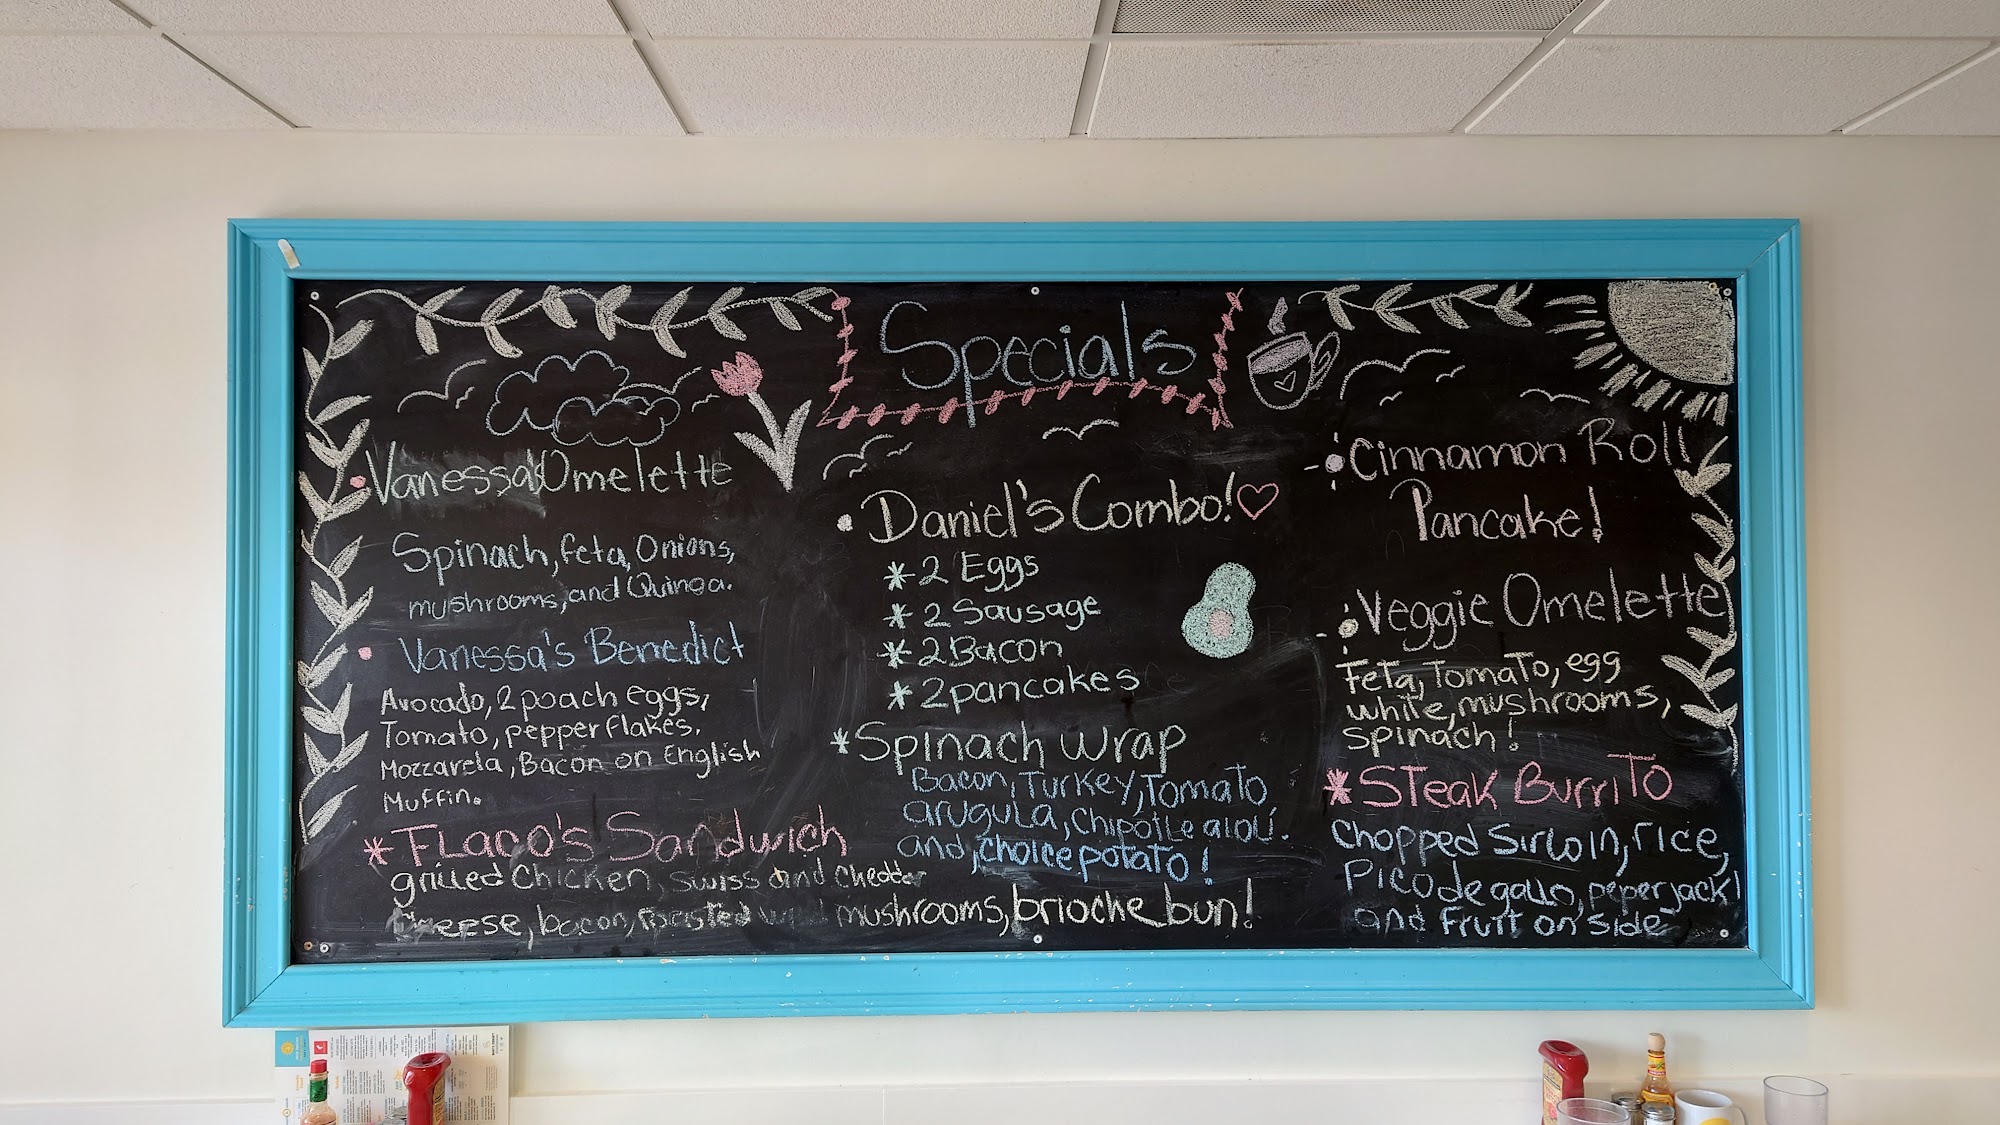 Specials
Vanessa's Omelette
Spinach, feta, Onions,
mushrooms, and Quinoa.
Vanessa's Benedict
Avocado, 2 poach eggs,
Tomato, pepper flakes,
Mozzarela, Bacon on English
Muffin.
*FLaco's Sandwich
grilled Chicken, swiss and chedder
cheese, bacon, roasted mushrooms, brioche bun!
Daniel's Combo!
*2 Eggs
*2 Sausage
*2 Bacon
*2 pancakes
*Spinach Wrap
Bacon, Turkey, Tomato,
arugula, Chipotle aloli.
and, choice potato!
Cinnamon Roll
Pancake!
Veggie Omelette
Feta, Tomato, egg
white, mushrooms,
spinach!
*Steak Burrito
Chopped Sirloin, rice,
Pico de gallo, peperjack
and Fruit on side